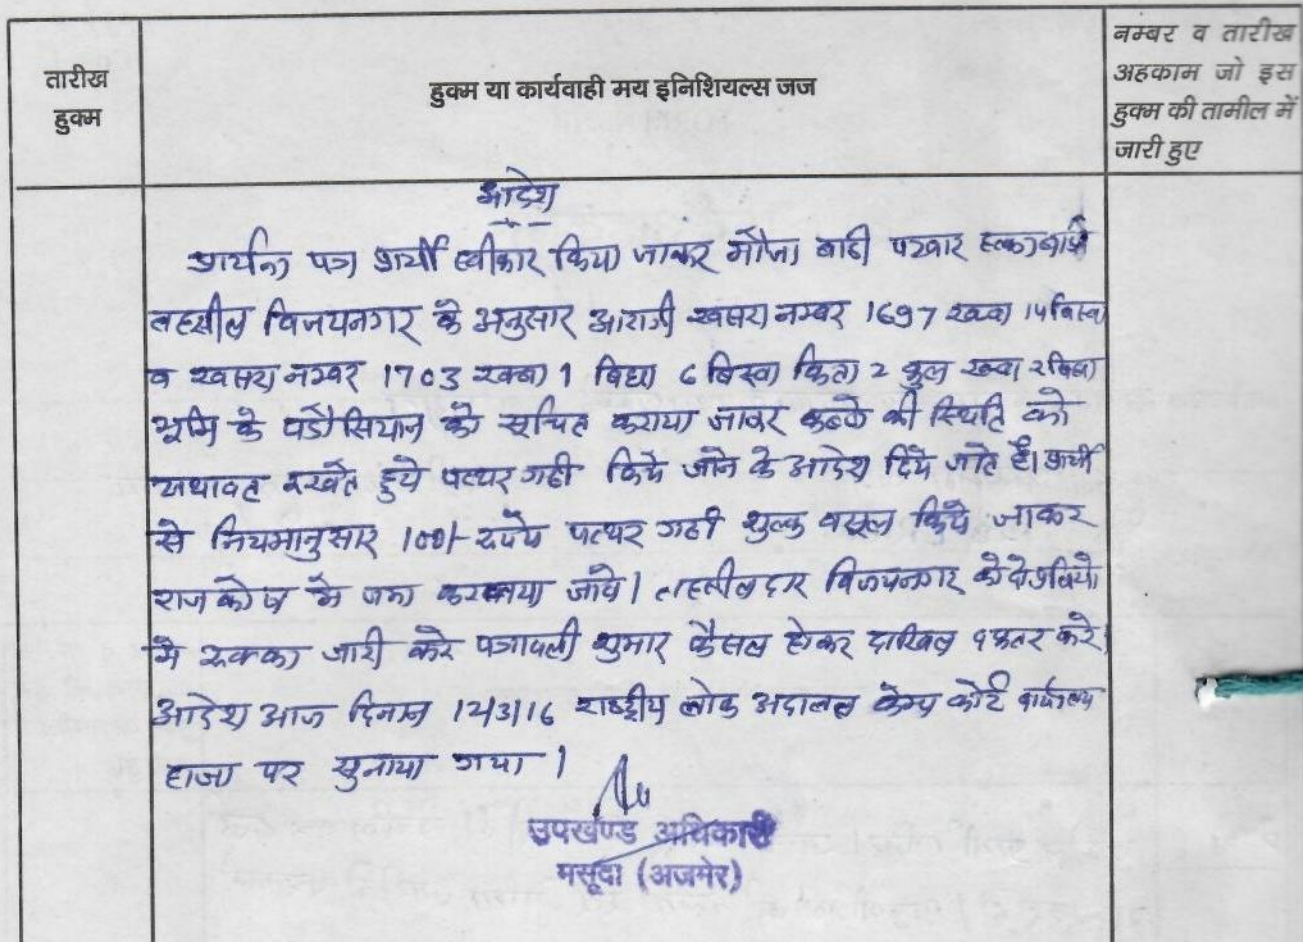 तारीख
हुक्म
हुक्म या कार्यवाही मय इनिशियल्स जज
नम्बर व तारीख
अहकाम जो इस
हुक्म की तामील में
जारी हुए
आदेश
प्रार्थना पत्र प्रार्थी स्वीकार किया जाकर मौजा बाडी पटवार हल्का बाडी
तहसील विजयनगर के अनुसार आराजी खसरा नम्बर 1697 रकबा 14 बिस्वा
व खसरा नम्बर 1703 रकबा 1 बिघा 6 बिस्वा किता 2 कुल रकबा 2 बिघा
भूमि के पडौसियान को सूचित कराया जाकर कब्जे की स्थिति को
यथावत रखते हुये पत्थर गढी किये जाने के आदेश दिये जाते है। प्रार्थी
से नियमानुसार 100/- रुपये पत्थर गढी शुल्क वसूल किये जाकर
राजकोष मे जमा करवाया जावे। तहसीलदार विजयनगर को
मे रुक्का जारी करे पत्रावली शुमार फैसल होकर दाखिल दफ्तर करे।
आदेश आज दिनांक 12/3/16 राष्ट्रीय लोक अदालत केम्प कोर्ट कार्यालय
हाजा पर सुनाया गया।
उपखण्ड अधिकारी
मसूदा (अजमेर)